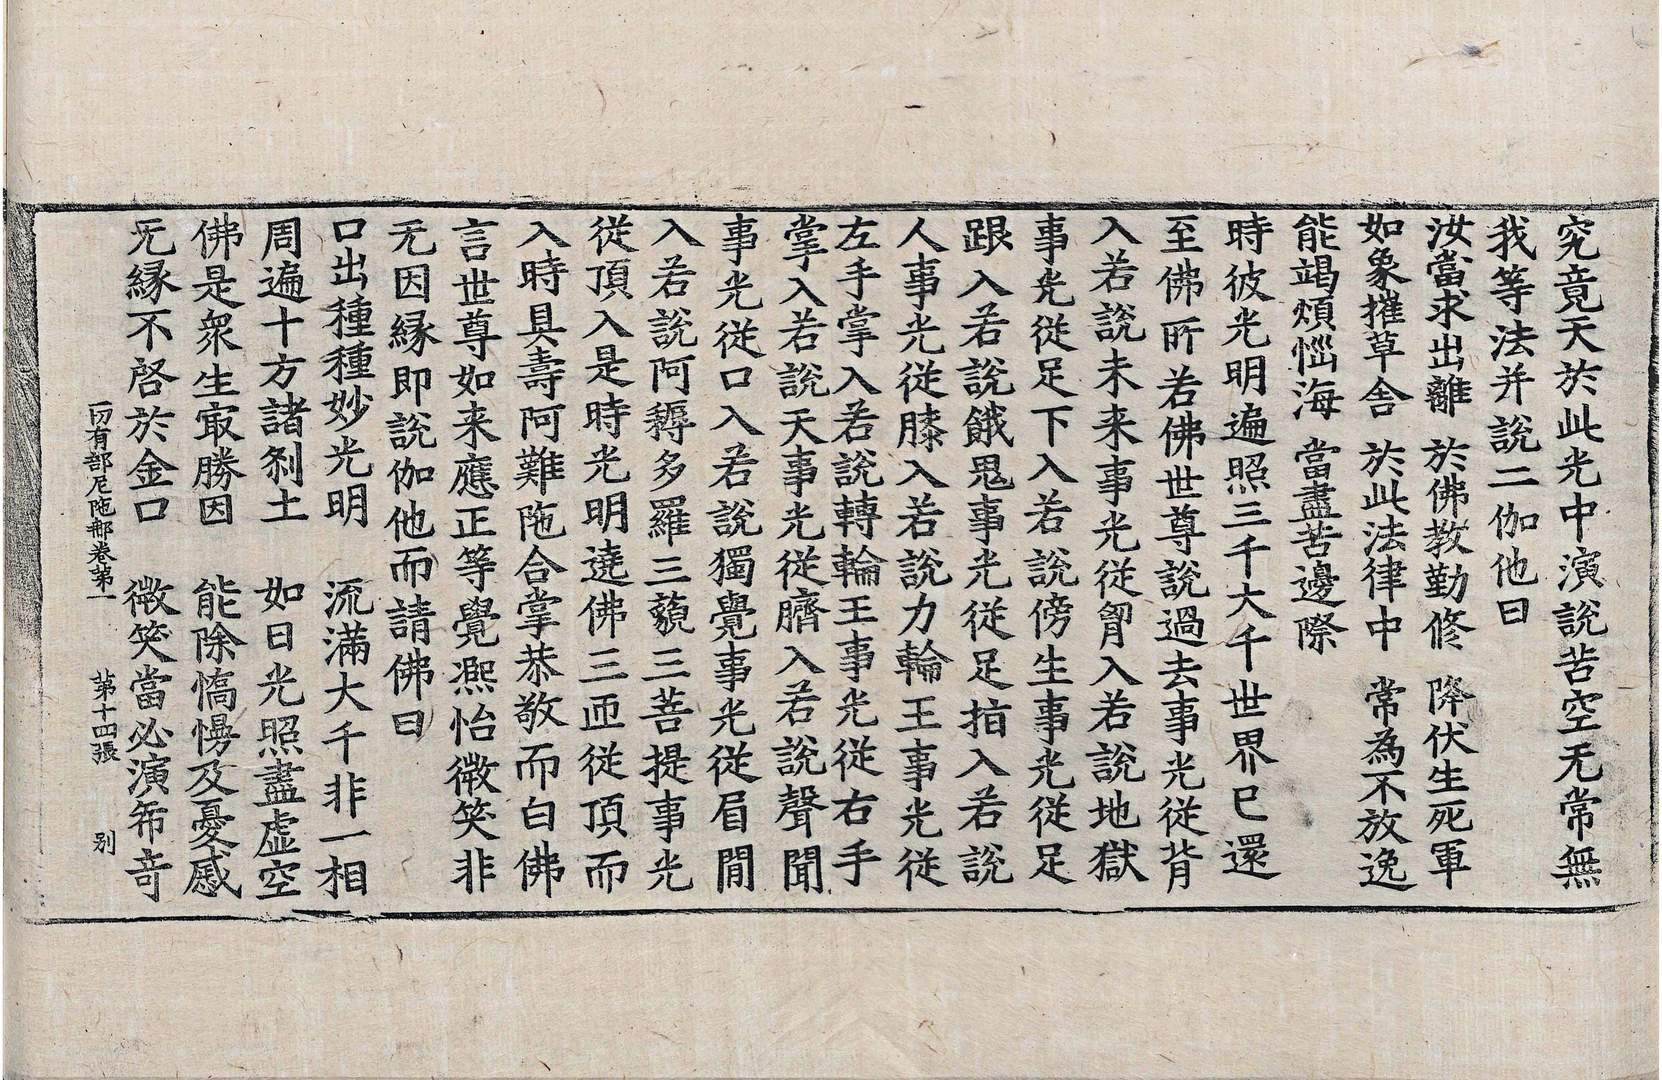 究竟天於此光中演說苦空无常無
我等法并說二伽他曰
汝當求出離　於佛教勤修　降伏生死軍
如象摧草舍　於此法律中　常為不放逸
能竭煩惱海　當盡苦邊際
時彼光明遍照三千大千世界已還
至佛所若佛世尊說過去事光從背
入若說未来事光從胷入若說地獄
事光從足下入若說傍生事光從足
跟入若說餓鬼事光從足拍入若說
人事光從膝入若說力輪王事光從
左手掌入若說轉輪王事光從右手
掌入若說天事光從臍入若說聲聞
事光從口入若說獨覺事光從眉間
入若說阿耨多羅三藐三菩提事光
從頂入是時光明遶佛三匝從頂而
入時具壽阿難陁合掌恭敬而白佛
言世尊如来應正等覺熈怡微笑非
无因緣即說伽他而請佛曰
口出種種妙光明　流滿大千非一相
周遍十方諸刹土　如日光照盡虛空
佛是衆生㝡勝因　能除憍慢及憂慼
无緣不啓於金口　微笑當必演希奇
一切有部尼陁那卷第一　第十四張　别